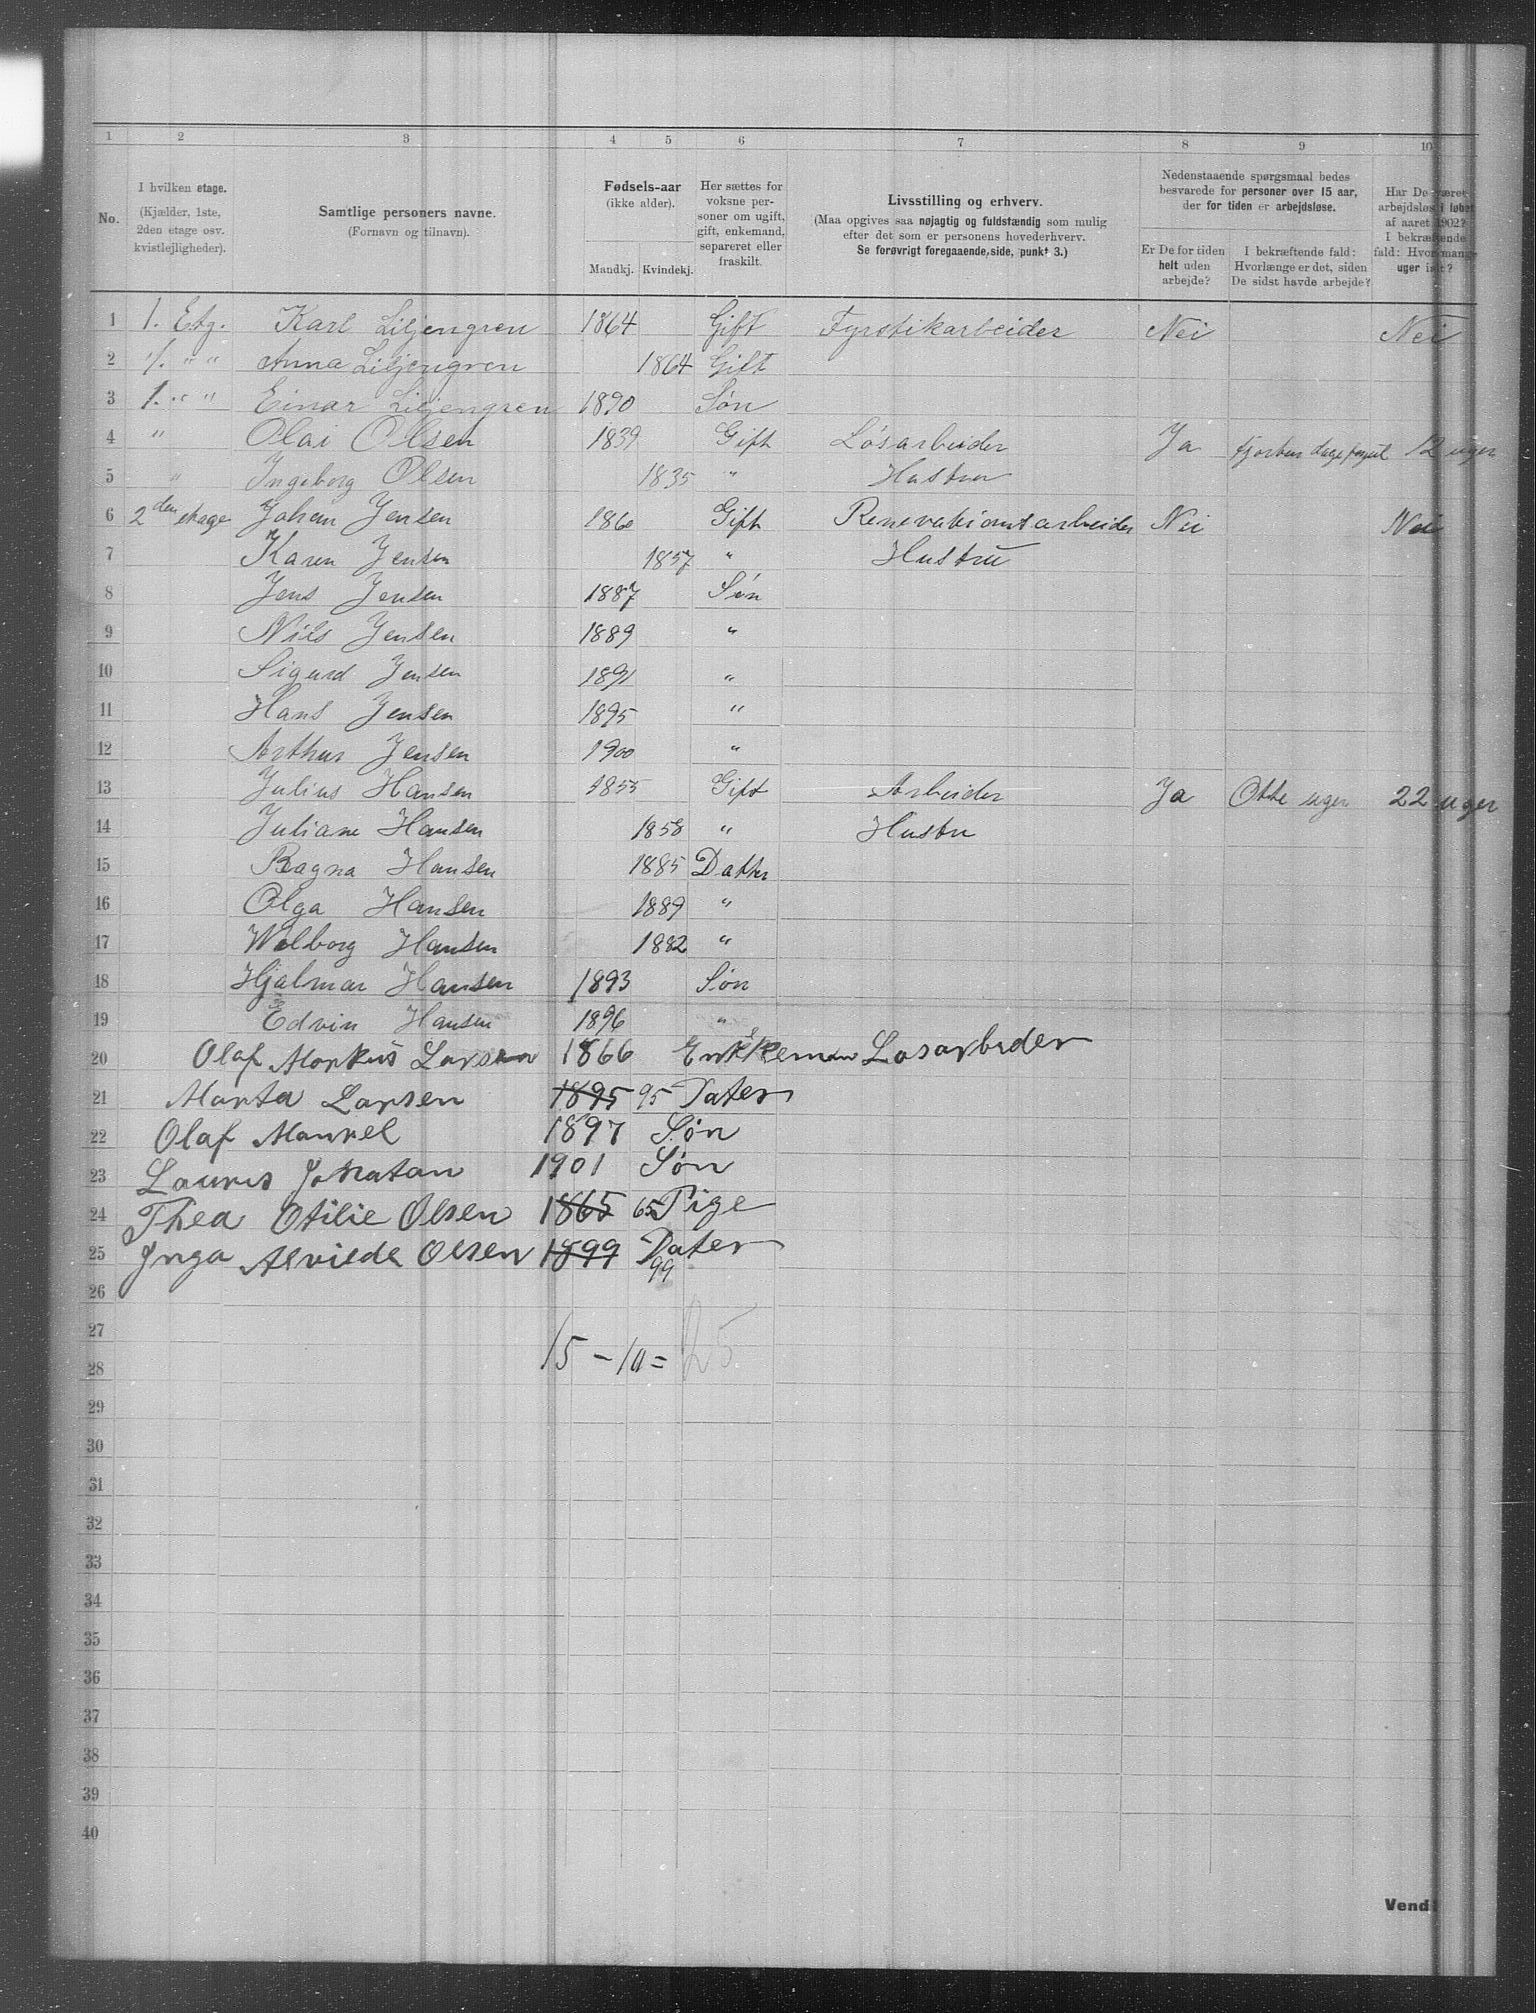 1 2 3 4 5 6 7 8 9 10
No. I hvilken etage. (Kjælder, 1ste, 2den etage osv. kvistlejligheder). Samtlige personers navne. (Fornavn og tilnavn). Fødsels-aar (ikke alder). Mandkj. Kvindekj. Her sættes for voksne personer om ugift, gift, enkemand, separeret eller fraskilt. Livsstilling og erhverv. (Maa opgives saa nøjagtig og fuldstændig som mulig efter det som er personens hovederhverv. Se forøvrigt foregaaende side, punkt 3.) Nedenstaaende spørgsmaal bedes besvarede for personer over 15 aar, der for tiden er arbejdsløse. Er De for tiden helt uden arbejde? I bekræftende fald: Hvorlænge er det, siden De sidst havde arbejde? Har De været arbejdsløs i løbet af aaret 1902? I bekræftende fald: Hvor mange uger ialt?
1 1. Etg. Karl Liljengren 1864 Gift Fyrstikarbeider Nei Nei
2 1. " " Anna Liljengren 1864 Gift
3 1. " " Einar Liljengren 1890 Søn
4 " Olai Olsen 1839 Gift Løsarbeider Ja fjorten dage 12 uger
5 " Ingeborg Olsen 1835 " Hustru
6 2den etage Johan Jensen 1860 Gift Renovationsarbeider Nei Nei
7 Karen Jensen 1857 " Hustru
8 Jens Jensen 1887 Søn
9 Nils Jensen 1889 "
10 Sigurd Jensen 1891 "
11 Hans Jensen 1895 "
12 Arthur Jensen 1900 "
13 Julius Hansen 1855 Gift Arbeider Ja Otte uger 22 uger
14 Juliane Hansen 1858 " Hustru
15 Ragna Hansen 1885 Datter
16 Olga Hansen 1889 "
17 Wolborg Hansen 1882 "
18 Hjalmar Hansen 1893 Søn
19 Edvin Hansen 1896 "
20 Olaf Markus Larsen 1866 Enkeman Losarbeder
21 Marta Larsen 1895 95 Dater
22 Olaf Manvel 1897 Søn
23 Lauris Jonatan 1901 Søn
24 Thea Otilie Olsen 1865 65 Pige
25 Inga Alvilde Olsen 1899 Dater
99
26
27
15 - 10 = 25
28
29
30
31
32
33
34
35
36
37
38
39
40
Vend!